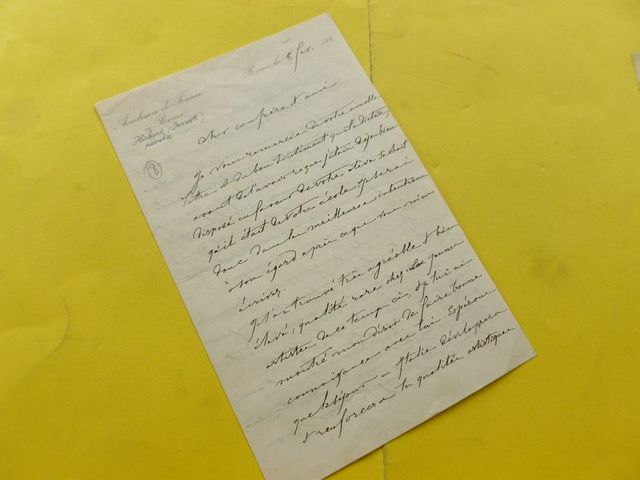 Académie de France
à
Rome
Rome le 8 fév. 188
Hébert (Ernest)
peintre
8
Cher confrère et ami
Je vous remercie de votre aimable
lettre et du bon sentiment qui l'a dictée,
avant de l'avoir reçue j'étais déjà bien
disposé en faveur de votre élève sachant
qu'il était de votre école et je serai
donc dans les meilleures intentions
à son égard après ce que vous m'en
écrivez.
Je l'ai trouvé très agréable et bien
élevé, qualité rare chez les jeunes
artistes de ce temps ci, et je lui ai
montré mon désir de faire bonne
connaissance avec lui. Espérons
que le séjour en Italie développera
et renforcera les qualités artistiques